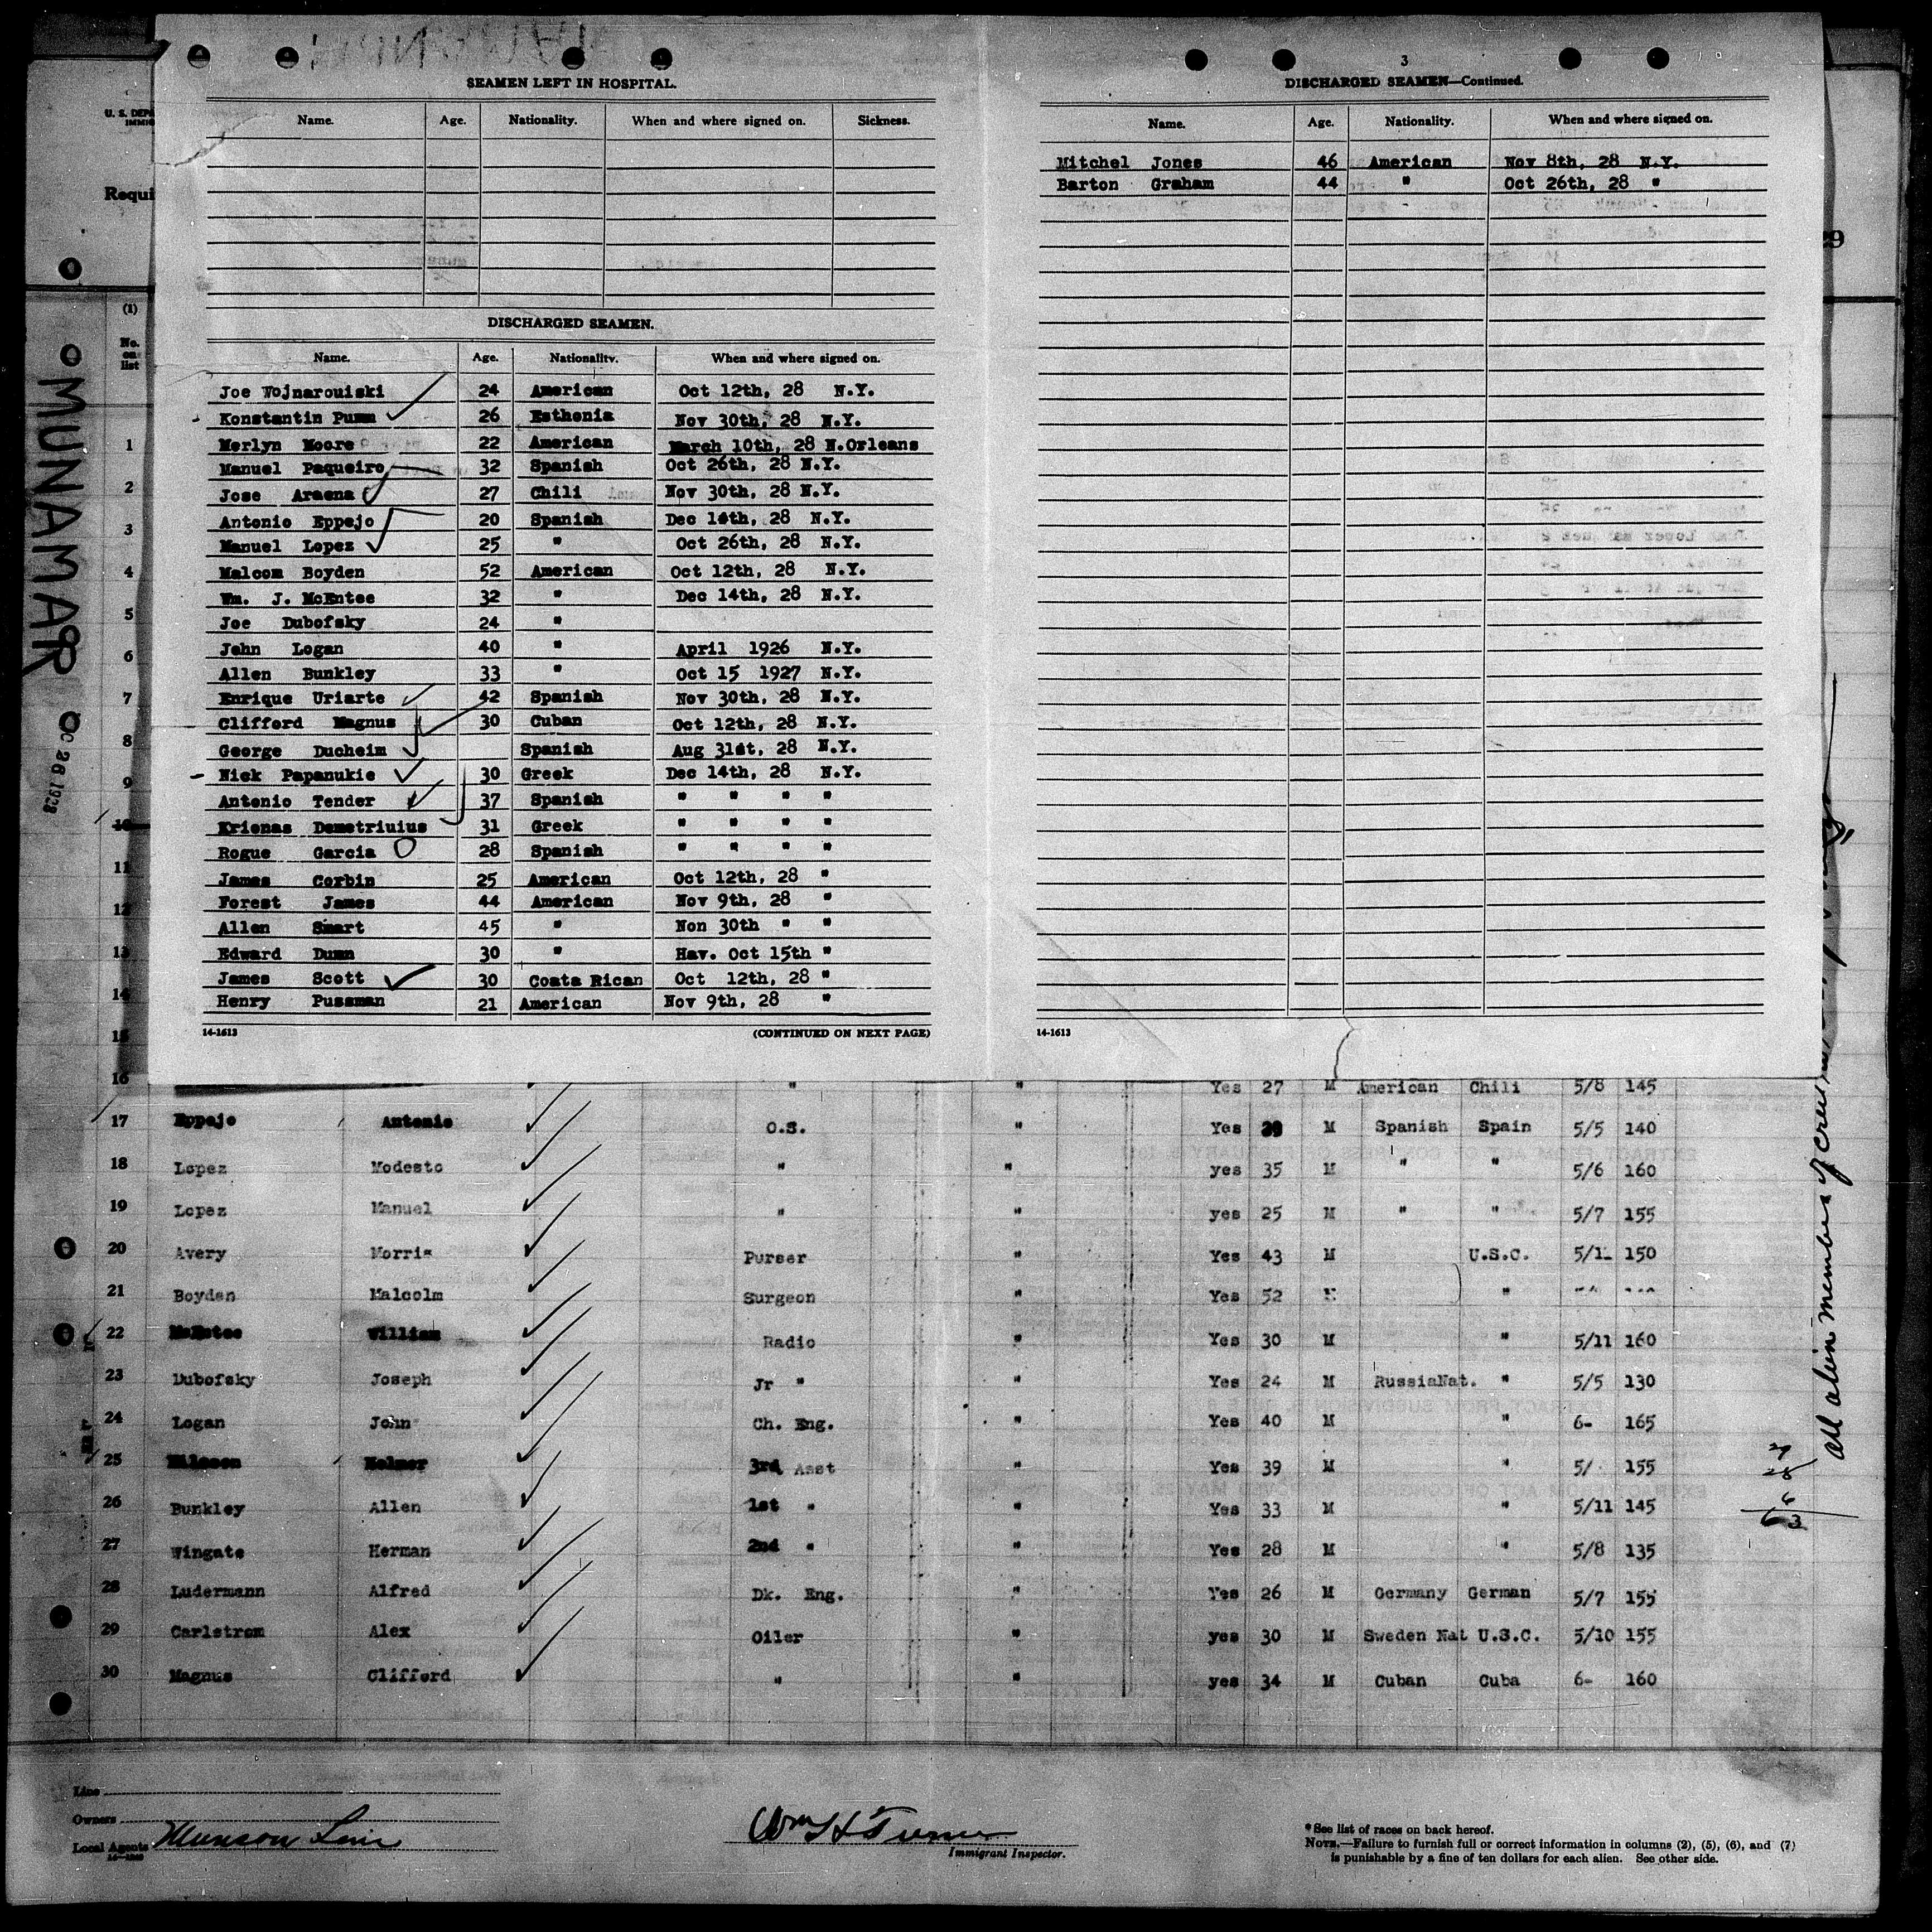 SEAMEN LEFT IN HOSPITAL.
Name. Age. Nationality. When and where signed on. Sickness.
DISCHARGED SEAMEN.
Name. Age. Nationality. When and where signed on.
Joe Wojnarouiski 24 American Oct 12th, 28 N.Y.
Konstantin Pumm 26 Esthonia Nov 30th, 28 N.Y.
Merlyn Moore 22 American March 10th, 28 N.Orleans
Manuel Paqueiro 32 Spanish Oct 26th, 28 N.Y.
Jose Araena 27 Chili Nov 30th, 28 N.Y.
Antonio Eppejo 20 Spanish Dec 14th, 28 N.Y.
Manuel Lopez 25 " Oct 26th, 28 N.Y.
Malcom Boyden 52 American Oct 12th, 28 N.Y.
Wm. J. McEntee 32 " Dec 14th, 28 N.Y.
Joe Dubofsky 24 "
John Logan 40 " April 1926 N.Y.
Allen Bunkley 33 " Oct 15 1927 N.Y.
Enrique Uriarte 42 Spanish Nov 30th, 28 N.Y.
Clifford Magnus 30 Cuban Oct 12th, 28 N.Y.
George Ducheim Spanish Aug 31st, 28 N.Y.
Nick Papanukie 30 Greek Dec 14th, 28 N.Y.
Antonio Tender 37 Spanish " " " "
Krienas Demetriuius 31 Greek " " " "
Rogue Garcia 28 Spanish " " " "
James Corbin 25 American Oct 12th, 28 "
Forest James 44 American Nov 9th, 28 "
Allen Smart 45 " Non 30th " "
Edward Dunn 30 " Hav. Oct 15th "
James Scott 30 Costa Rican Oct 12th, 28 "
Henry Pussman 21 American Nov 9th, 28 "
14-1613 (CONTINUED ON NEXT PAGE)
3
DISCHARGED SEAMEN—Continued.
Name. Age. Nationality. When and where signed on.
Mitchel Jones 46 American Nov 8th, 28 N.Y.
Barton Graham 44 " Oct 26th, 28 "
14-1613
U. S. DEPA
IMMIG
Requi
29
(1)
No. on list
MUNAMAR
1
2
3
4
5
6
7
8
9
10
11
12
13
14
15
16 " " Yes 27 M American Chili 5/8 145
17 Eppejo Antonio O.S. " Yes M Spanish Spain 5/5 140
18 Lopez Modesto " " yes 35 M " " 5/6 160
19 Lopez Manuel " " yes 25 M " " 5/7 155
20 Avery Morris Purser " Yes 43 M U.S.C. 5/11 150
21 Boyden Malcolm Surgeon " Yes 52 M "
22 McEntee William Radio " Yes 30 M " 5/11 160
23 Dubofsky Joseph Jr " " Yes 24 M RussiaNat. " 5/5 130
24 Logan John Ch. Eng. " Yes 40 M " 6- 165
25 Nilsson Helmer 3rd Asst " Yes 39 M " 5/ 155
26 Bunkley Allen 1st " " Yes 33 M " 5/11 145
27 Wingate Herman 2nd " " Yes 28 M " 5/8 135
28 Ludermann Alfred Dk. Eng. " Yes 26 M Germany German 5/7 155
29 Carlstrom Alex Oiler " yes 30 M Sweden Nat U.S.C. 5/10 155
30 Magnus Clifford " " yes 34 M Cuban Cuba 6- 160
All alien members of crew
Line
Owners
Local Agents Munson Line
Wm H Turner
Immigrant Inspector.
* See list of races on back hereof.
NOTE.—Failure to furnish full or correct information in columns (2), (5), (6), and (7)
is punishable by a fine of ten dollars for each alien. See other side.